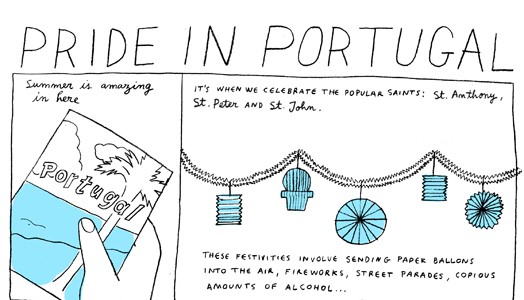 PRIDE IN PORTUGAL
Summer is amazing
in here
Portugal
IT'S WHEN WE CELEBRATE THE POPULAR SAINTS: St. Anthony,
St. Peter AND St. John.
THESE FESTIVITIES INVOLVE SENDING PAPER BALLONS
INTO THE AIR, FIREWORKS, STREET PARADES, COPIOUS
AMOUNTS OF ALCOHOL...